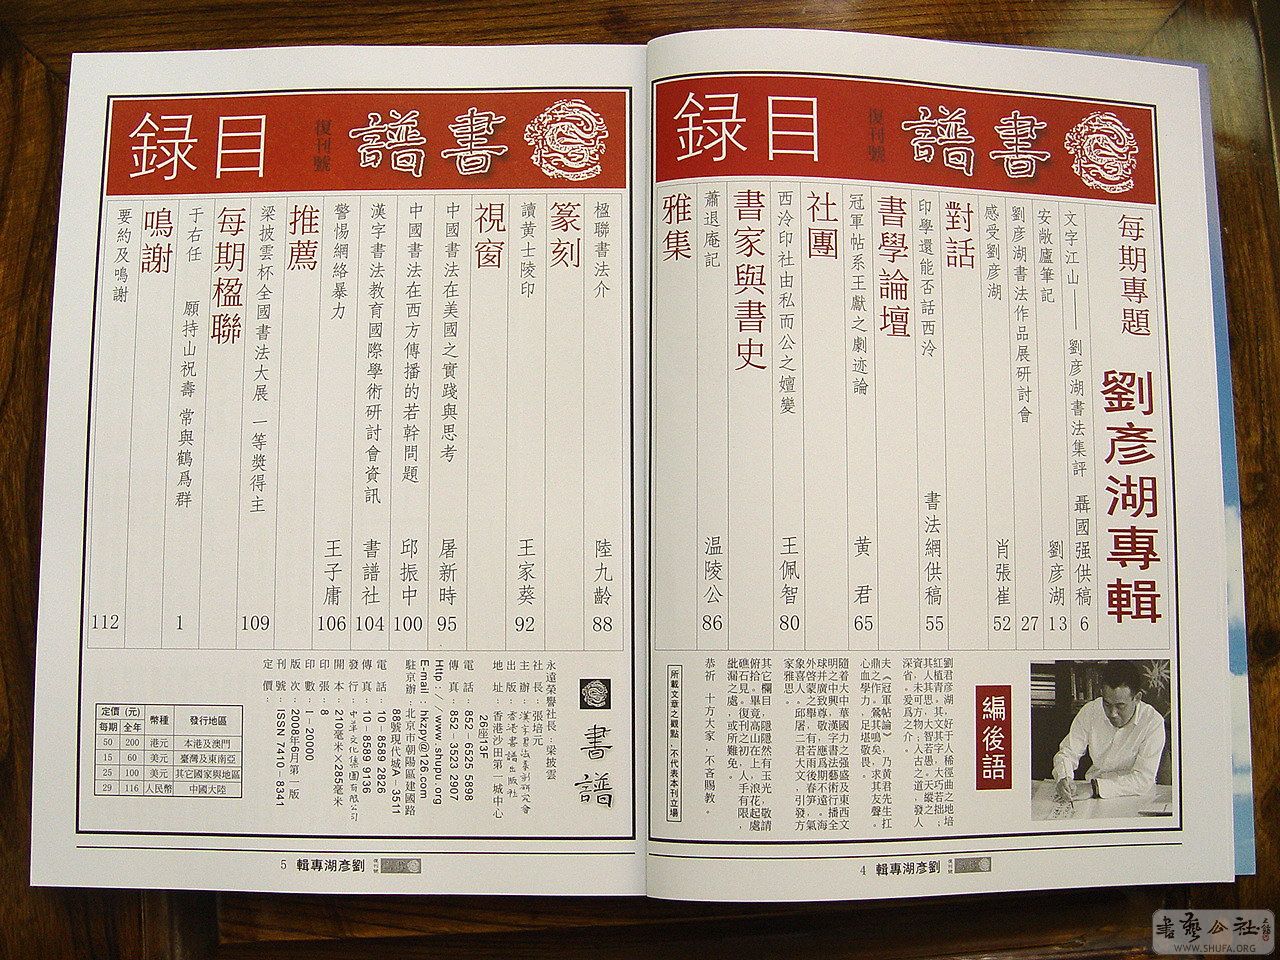 書譜 復刊號 目録
每期專題 劉彦湖專輯
文字江山——劉彦湖書法集評 聶國强供稿 6
安敞廬筆記 劉彦湖 13
劉彦湖書法作品展研討會 27
感受劉彦湖 肖張崔 52
對話
印學還能否話西泠 書法網供稿 55
書學論壇
冠軍帖系王獻之劇迹論 黄君 65
社團
西泠印社由私而公之嬗變 王佩智 80
書家與書史
蕭退庵記 温陵公 86
雅集
編後語
所載文章之觀點，不代表本刊立場
恭祈 十方大家，不吝賜教。
4 劉彦湖專輯 復刊號
書譜 復刊號 目録
楹聯書法介 陸九齡 88
篆刻
讀黄士陵印 王家葵 92
視窗
中國書法在美國之實踐與思考 屠新時 95
中國書法在西方傳播的若幹問題 邱振中 100
漢字書法教育國際學術研討會資訊 書譜社 104
警惕網絡暴力 王子庸 106
推薦
梁披雲杯全國書法大展 一等獎得主 109
每期楹聯
于右任 願持山祝壽 常與鶴爲群 1
鳴謝
要約及鳴謝 112
書譜
永遠榮譽社長：梁披雲
社長：張培元
主辦：漢字書法篆刻研究會
出版：香港書譜出版社
地址：香港沙田第一城中心
26座13F
電話：852-6525 5898
傳真：852-3523 2907
Http：//www.shupu.org
E-mail：hkzpy@126.com
駐京辦：北京市朝陽區建國路
88號現代城A-3511
電話：10-8589 9193
傳真：10-8589 9136
發行：中華文化集團有限公司
開本：210毫米×285毫米
印張：8
印數：1-20000
版次：2008年6月第一版
刊號：ISSN 7410-8341
定價：
定價（元） 幣種 發行地區
每期 全年
50 200 港元 本港及澳門
15 60 美元 臺灣及東南亞
25 100 美元 其它國家與地區
29 116 人民幣 中國大陸
5 劉彦湖專輯 復刊號
書藝公社
WWW.SHUFA.ORG